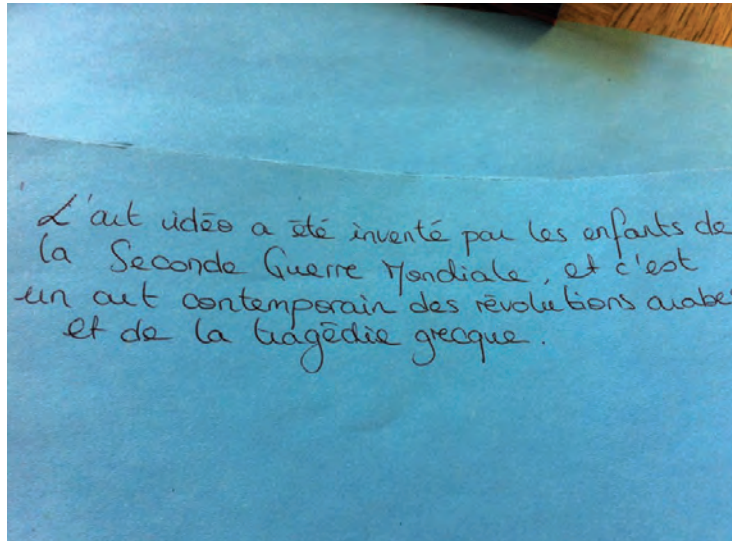 L'art vidéo a été inventé par les enfants de
la Seconde Guerre Mondiale, et c'est
un art contemporain des révolutions arabes
et de la tragédie grecque.